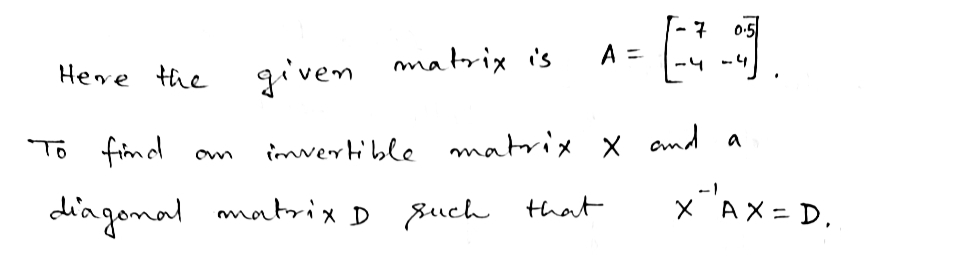 Here the given matrix is A = [-7 0.5
-4 -4].
To find an invertible matrix X and a
diagonal matrix D such that X⁻¹AX = D.